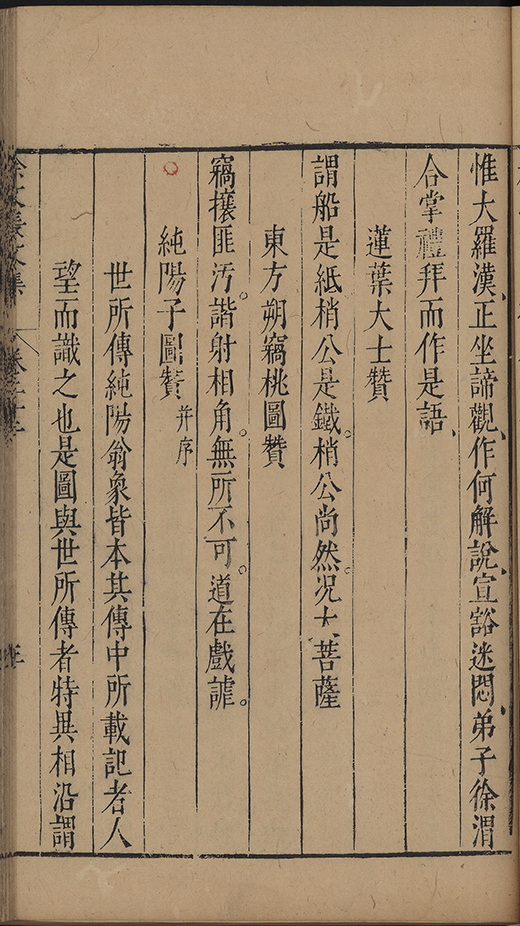 惟大羅漢、正坐諦觀、作何解說、宣豁迷悶、弟子徐渭
合掌禮拜而作是語、
蓮葉大士贊
謂船是紙梢公是鐵。梢公尚然。况大菩薩
東方朔竊桃圖贊
竊攘匪汚。諧射相角。無所不可。道在戲謔。
純陽子圖贊 并序
世所傳純陽翁象皆本其傳中所載記者人
望而識之也是圖與世所傳者特異相沿謂
徐文長文集 卷二十二